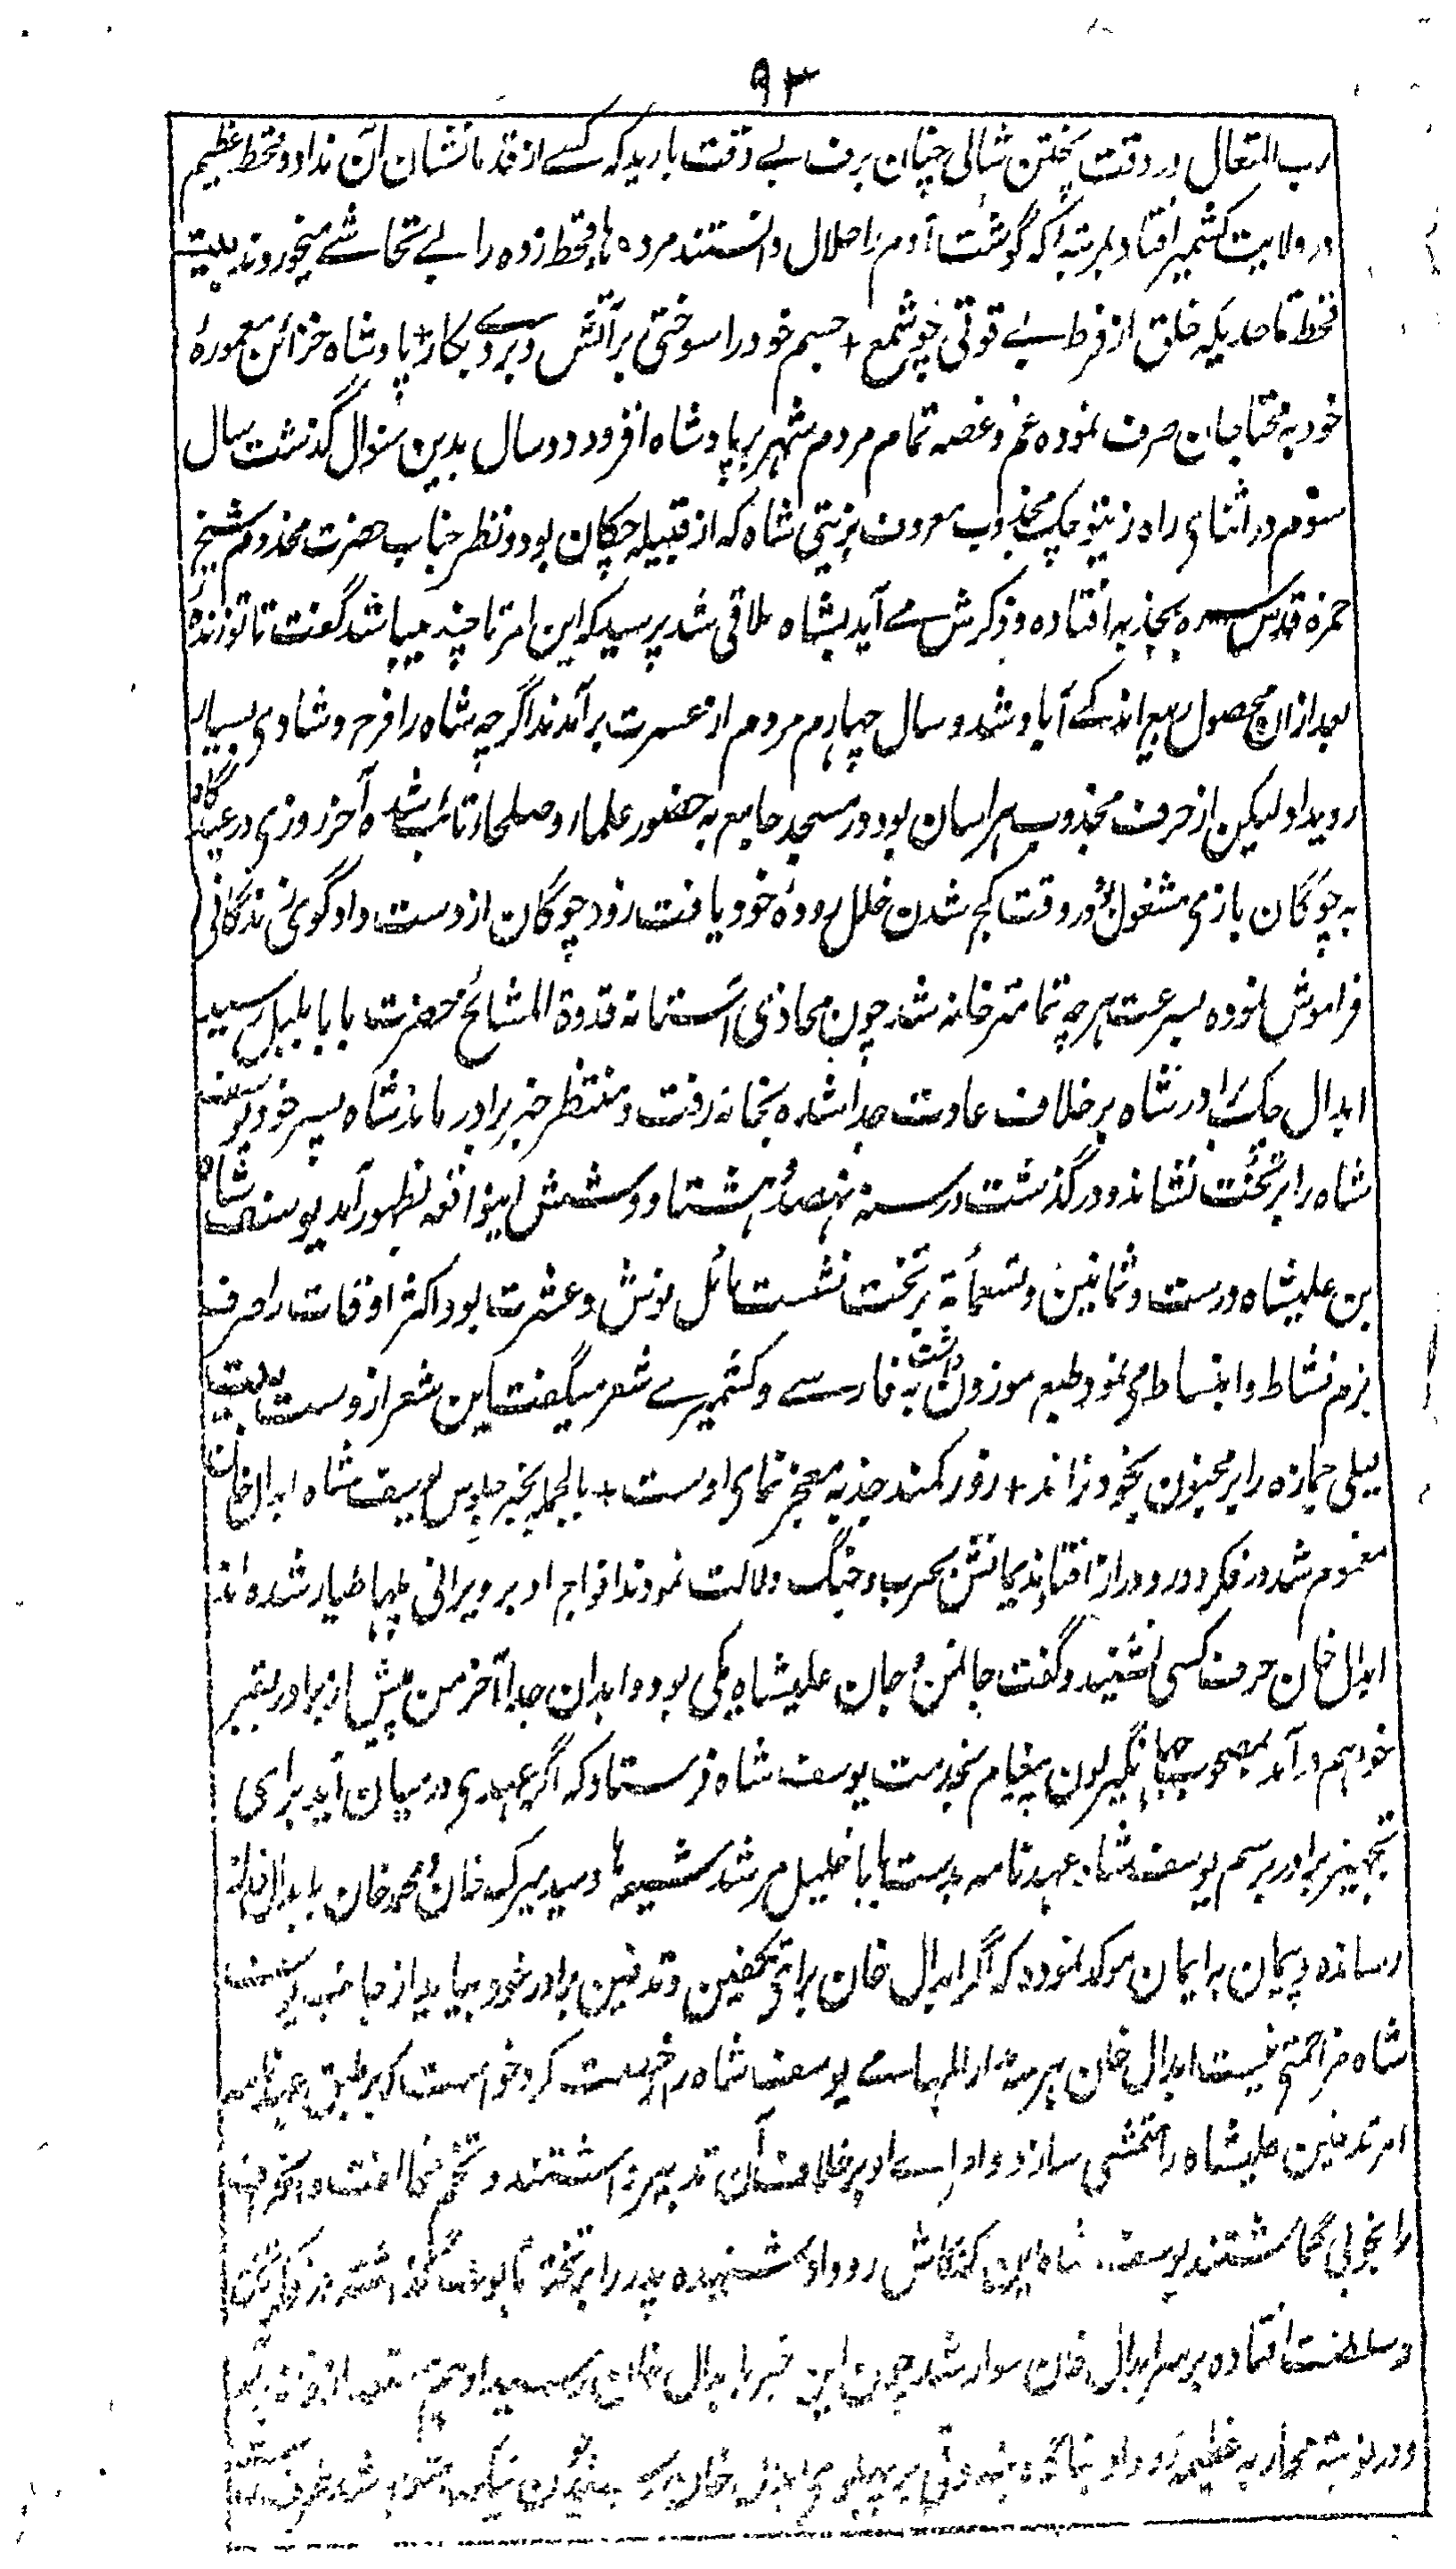 ۹۳
رب المتعال در وقت پختن شالی چنان برف بے وقت بارید که کسے از قدما نشان آن نداد و قحط عظیم
در ولایت کشمیر افتاد بمرتبهٔ که گوشت آدم را حلال دانستند مرده ہاے قحط زده را بے تحاشے میخوردند بیت
قحط تا حدیکه خلق از فرط بے قوتی چو شمع + جسم خود را سوختی بر آتش و بردے بکار + پادشاه خزائن معمورهٔ
خود به محتاجان صرف نموده غم و غصه تمام مردم شہر بر پادشاه افزود دو سال بدین منوال گذشت سال
سوم در اثنای راه زیتو چک مجذوب معروف بزیتی شاه که از قبیله چکان بود و نظر جناب حضرت مخدوم شیخ
حمزه قدس سره بجذبه افتاده و ذکرش مے آید بشاه ملاقی شد پرسید که این امر تا چند میباشد گفت تا تو زندهٔ
بعد ازان محصول ربیع اندکے آباد شد و سال چہارم مردم از عسرت برآمدند اگرچه شاه را فرح و شادی بسیار
رویداد لیکن از حرف مجذوب ہراسان بود در مسجد جامع به حضور علماء و صلحا تائب شده آخر روزی در عیدگاه
به چوگان بازی مشغول بود در وقت کج شدن خلل رودهٔ خود یافت زود چوگان از دست داد گوی زندگانی
فراموش نموده بسرعت ہرچه تمامتر خانه شد چون محاذی آستانه قدوة المشائخ حضرت بابا بلبل رسید
ابدال چک برادر شاه بر خلاف عادت جدا شده بخانه رفت و منتظر خبر برادر ماند شاه پسر خود یوسف
شاه را بر تخت نشاند و درگذشت در سنه نہصد و ہشتاد و شش اینواقعه بظہور آمد یوسف شاه
بن علیشاه در ست و ثمانین و تسعمأة بر تخت نشست مائل نوش و عشرت بود اکثر اوقات را صرف
بزم نشاط و انبساط می نمود طبع موزون داشت به فارسے و کشمیرے شعر میگفت این شعر از وست بیت
لیلی جمازه را بر مجنون بخود نراند + زور کمند جذبه معجز نمای اوست + بالجمله بخبر جلوس یوسف شاه ابدال خان
مغموم شد در فکر دور و دراز افتاد یکانش بحرب و جنگ دلالت نمودند افواج او بر ویرانی پلہا طیار شده اند
ابدال خان حرف کسی نشنید و گفت جان من و جان علیشاه یکی بود و ابدان جدا آخر من پیش از برادر بقبر
خواہم در آمد بمصحوب جہانگیر لون پیغام بخدمت یوسف شاه فرستاد که اگر عہدی درمیان آید برای
تجہیز برادر برسم یوسف شاه عہدنامه بدست بابا خلیل مرشد شیعہا و سید میرک خان و محمد خان بابدال خان
رسانده پیمان به ایمان موکد نمود که اگر ابدال خان برای تکفین و تدفین برادر خود بیاید از جانب یوسف
شاه مزاحمتی نیست ابدال خان یوسف شاه رخصت کرد خواست که بر طبق عہدنامه
امر تدفین علیشاه را متمشی سازد و او بر خلاف آن تدبیر داشتند و تخم مخالفت و انحراف
را بخوبی گماشتند یوسف شاه این کنکاش رو داد شنیده پدر را بر تخته تابوت گذاشته در فکر تخت
و سلطنت افتاده بر سر ابدال خان سوار شد چون این خبر بابدال خان رسید او ہم
و در نوہته محاربه عظیمه رو داد بر پہلوی ابدال خان